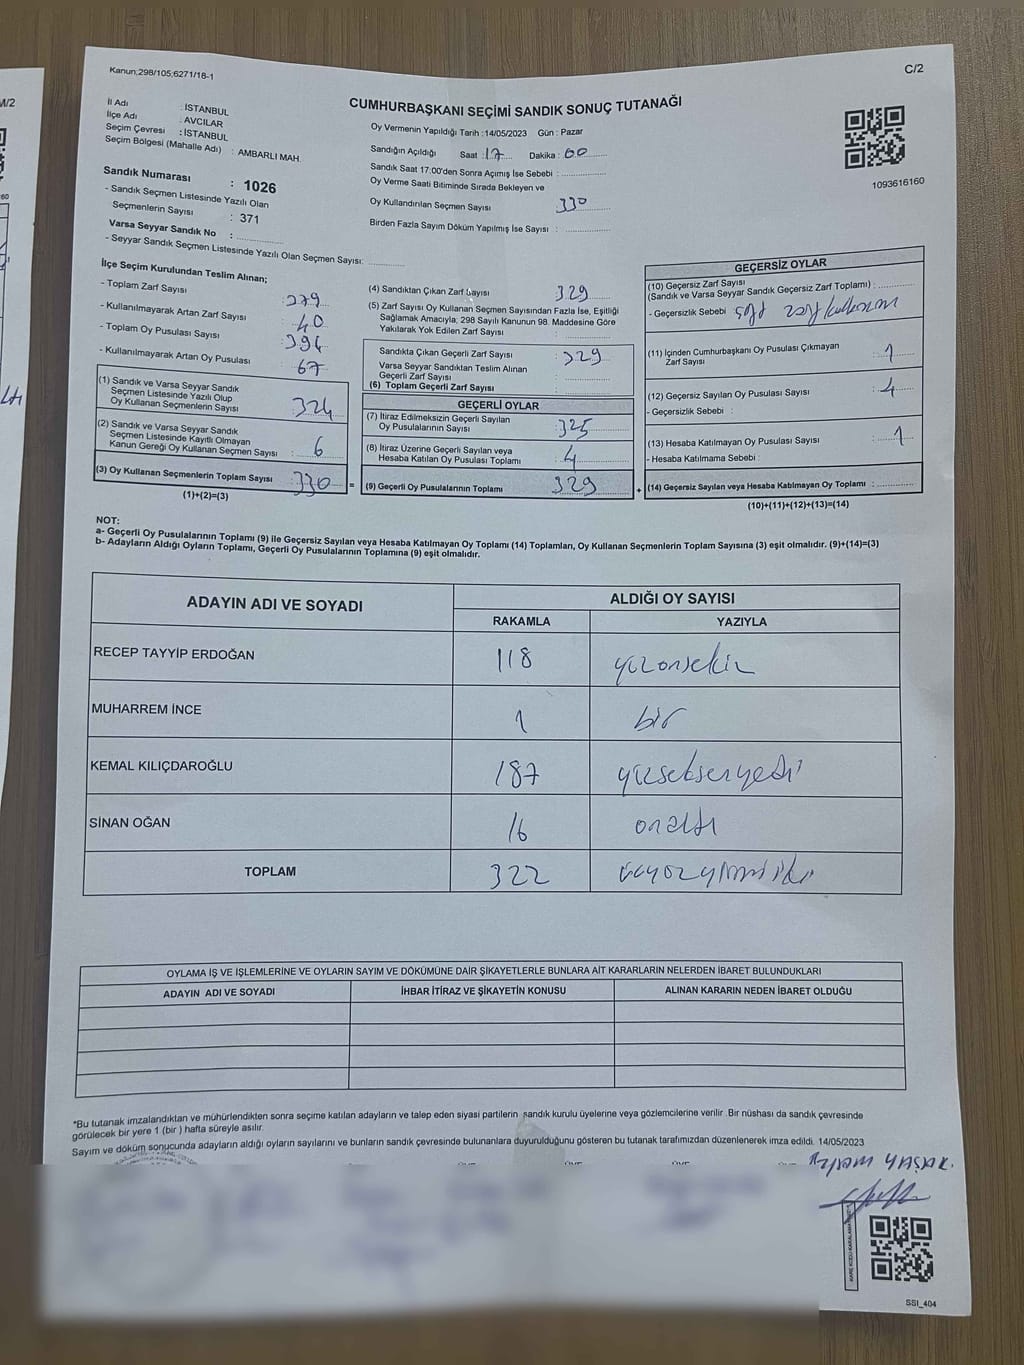 Kanun;298/105;6271/18-1
C/2
CUMHURBAŞKANI SEÇİMİ SANDIK SONUÇ TUTANAĞI
İl Adı : İSTANBUL
İlçe Adı : AVCILAR
Seçim Çevresi : İSTANBUL
Seçim Bölgesi (Mahalle Adı) : AMBARLI MAH.
Sandık Numarası : 1026
- Sandık Seçmen Listesinde Yazılı Olan
Seçmenlerin Sayısı : 371
Varsa Seyyar Sandık No :
- Seyyar Sandık Seçmen Listesinde Yazılı Olan Seçmen Sayısı:
Oy Vermenin Yapıldığı Tarih :14/05/2023 Gün : Pazar
Sandığın Açıldığı Saat : 17 Dakika : 00
Sandık Saat 17:00'den Sonra Açımış İse Sebebi :
Oy Verme Saati Bitiminde Sırada Bekleyen ve
Oy Kullandırılan Seçmen Sayısı 330
Birden Fazla Sayım Döküm Yapılmış İse Sayısı :
1093616160
İlçe Seçim Kurulundan Teslim Alınan;
- Toplam Zarf Sayısı : 379
- Kullanılmayarak Artan Zarf Sayısı : 40
- Toplam Oy Pusulası Sayısı : 394
- Kullanılmayarak Artan Oy Pusulası : 67
(1) Sandık ve Varsa Seyyar Sandık
Seçmen Listesinde Yazılı Olup
Oy Kullanan Seçmenlerin Sayısı 324
(2) Sandık ve Varsa Seyyar Sandık
Seçmen Listesinde Kayıtlı Olmayan
Kanun Gereği Oy Kullanan Seçmen Sayısı : 6
(3) Oy Kullanan Seçmenlerin Toplam Sayısı : 330
(1)+(2)=(3)
(4) Sandıktan Çıkan Zarf Sayısı 329
(5) Zarf Sayısı Oy Kullanan Seçmen Sayısından Fazla İse, Eşitliği
Sağlamak Amacıyla; 298 Sayılı Kanunun 98. Maddesine Göre
Yakılarak Yok Edilen Zarf Sayısı :
Sandıkta Çıkan Geçerli Zarf Sayısı : 329
Varsa Seyyar Sandıktan Teslim Alınan
Geçerli Zarf Sayısı :
(6) Toplam Geçerli Zarf Sayısı
GEÇERLİ OYLAR
(7) İtiraz Edilmeksizin Geçerli Sayılan
Oy Pusulalarının Sayısı : 325
(8) İtiraz Üzerine Geçerli Sayılan veya
Hesaba Katılan Oy Pusulası Toplamı : 4
= (9) Geçerli Oy Pusulalarının Toplamı 329 +
GEÇERSİZ OYLAR
(10) Geçersiz Zarf Sayısı
(Sandık ve Varsa Seyyar Sandık Geçersiz Zarf Toplamı) :
- Geçersizlik Sebebi
(11) İçinden Cumhurbaşkanı Oy Pusulası Çıkmayan
Zarf Sayısı : 1
(12) Geçersiz Sayılan Oy Pusulası Sayısı : 4
- Geçersizlik Sebebi :
(13) Hesaba Katılmayan Oy Pusulası Sayısı : 1
- Hesaba Katılmama Sebebi :
(14) Geçersiz Sayılan veya Hesaba Katılmayan Oy Toplamı :
(10)+(11)+(12)+(13)=(14)
NOT:
a- Geçerli Oy Pusulalarının Toplamı (9) ile Geçersiz Sayılan veya Hesaba Katılmayan Oy Toplamı (14) Toplamları, Oy Kullanan Seçmenlerin Toplam Sayısına (3) eşit olmalıdır. (9)+(14)=(3)
b- Adayların Aldığı Oyların Toplamı, Geçerli Oy Pusulalarının Toplamına (9) eşit olmalıdır.
ADAYIN ADI VE SOYADI
ALDIĞI OY SAYISI
RAKAMLA YAZIYLA
RECEP TAYYİP ERDOĞAN 118 yüzonsekiz
MUHARREM İNCE 1 bir
KEMAL KILIÇDAROĞLU 187 yüzseksenyedi
SİNAN OĞAN 16 onaltı
TOPLAM 322 üçyüzyirmiiki
OYLAMA İŞ VE İŞLEMLERİNE VE OYLARIN SAYIM VE DÖKÜMÜNE DAİR ŞİKAYETLERLE BUNLARA AİT KARARLARIN NELERDEN İBARET BULUNDUKLARI
ADAYIN ADI VE SOYADI İHBAR İTİRAZ VE ŞİKAYETİN KONUSU ALINAN KARARIN NEDEN İBARET OLDUĞU
*Bu tutanak imzalandıktan ve mühürlendikten sonra seçime katılan adayların ve talep eden siyasi partilerin sandık kurulu üyelerine veya gözlemcilerine verilir .Bir nüshası da sandık çevresinde
görülecek bir yere 1 (bir ) hafta süreyle asılır.
Sayım ve döküm sonucunda adayların aldığı oyların sayılarını ve bunların sandık çevresinde bulunanlara duyurulduğunu gösteren bu tutanak tarafımızdan düzenlenerek imza edildi. 14/05/2023
YAŞAR
SSI_404